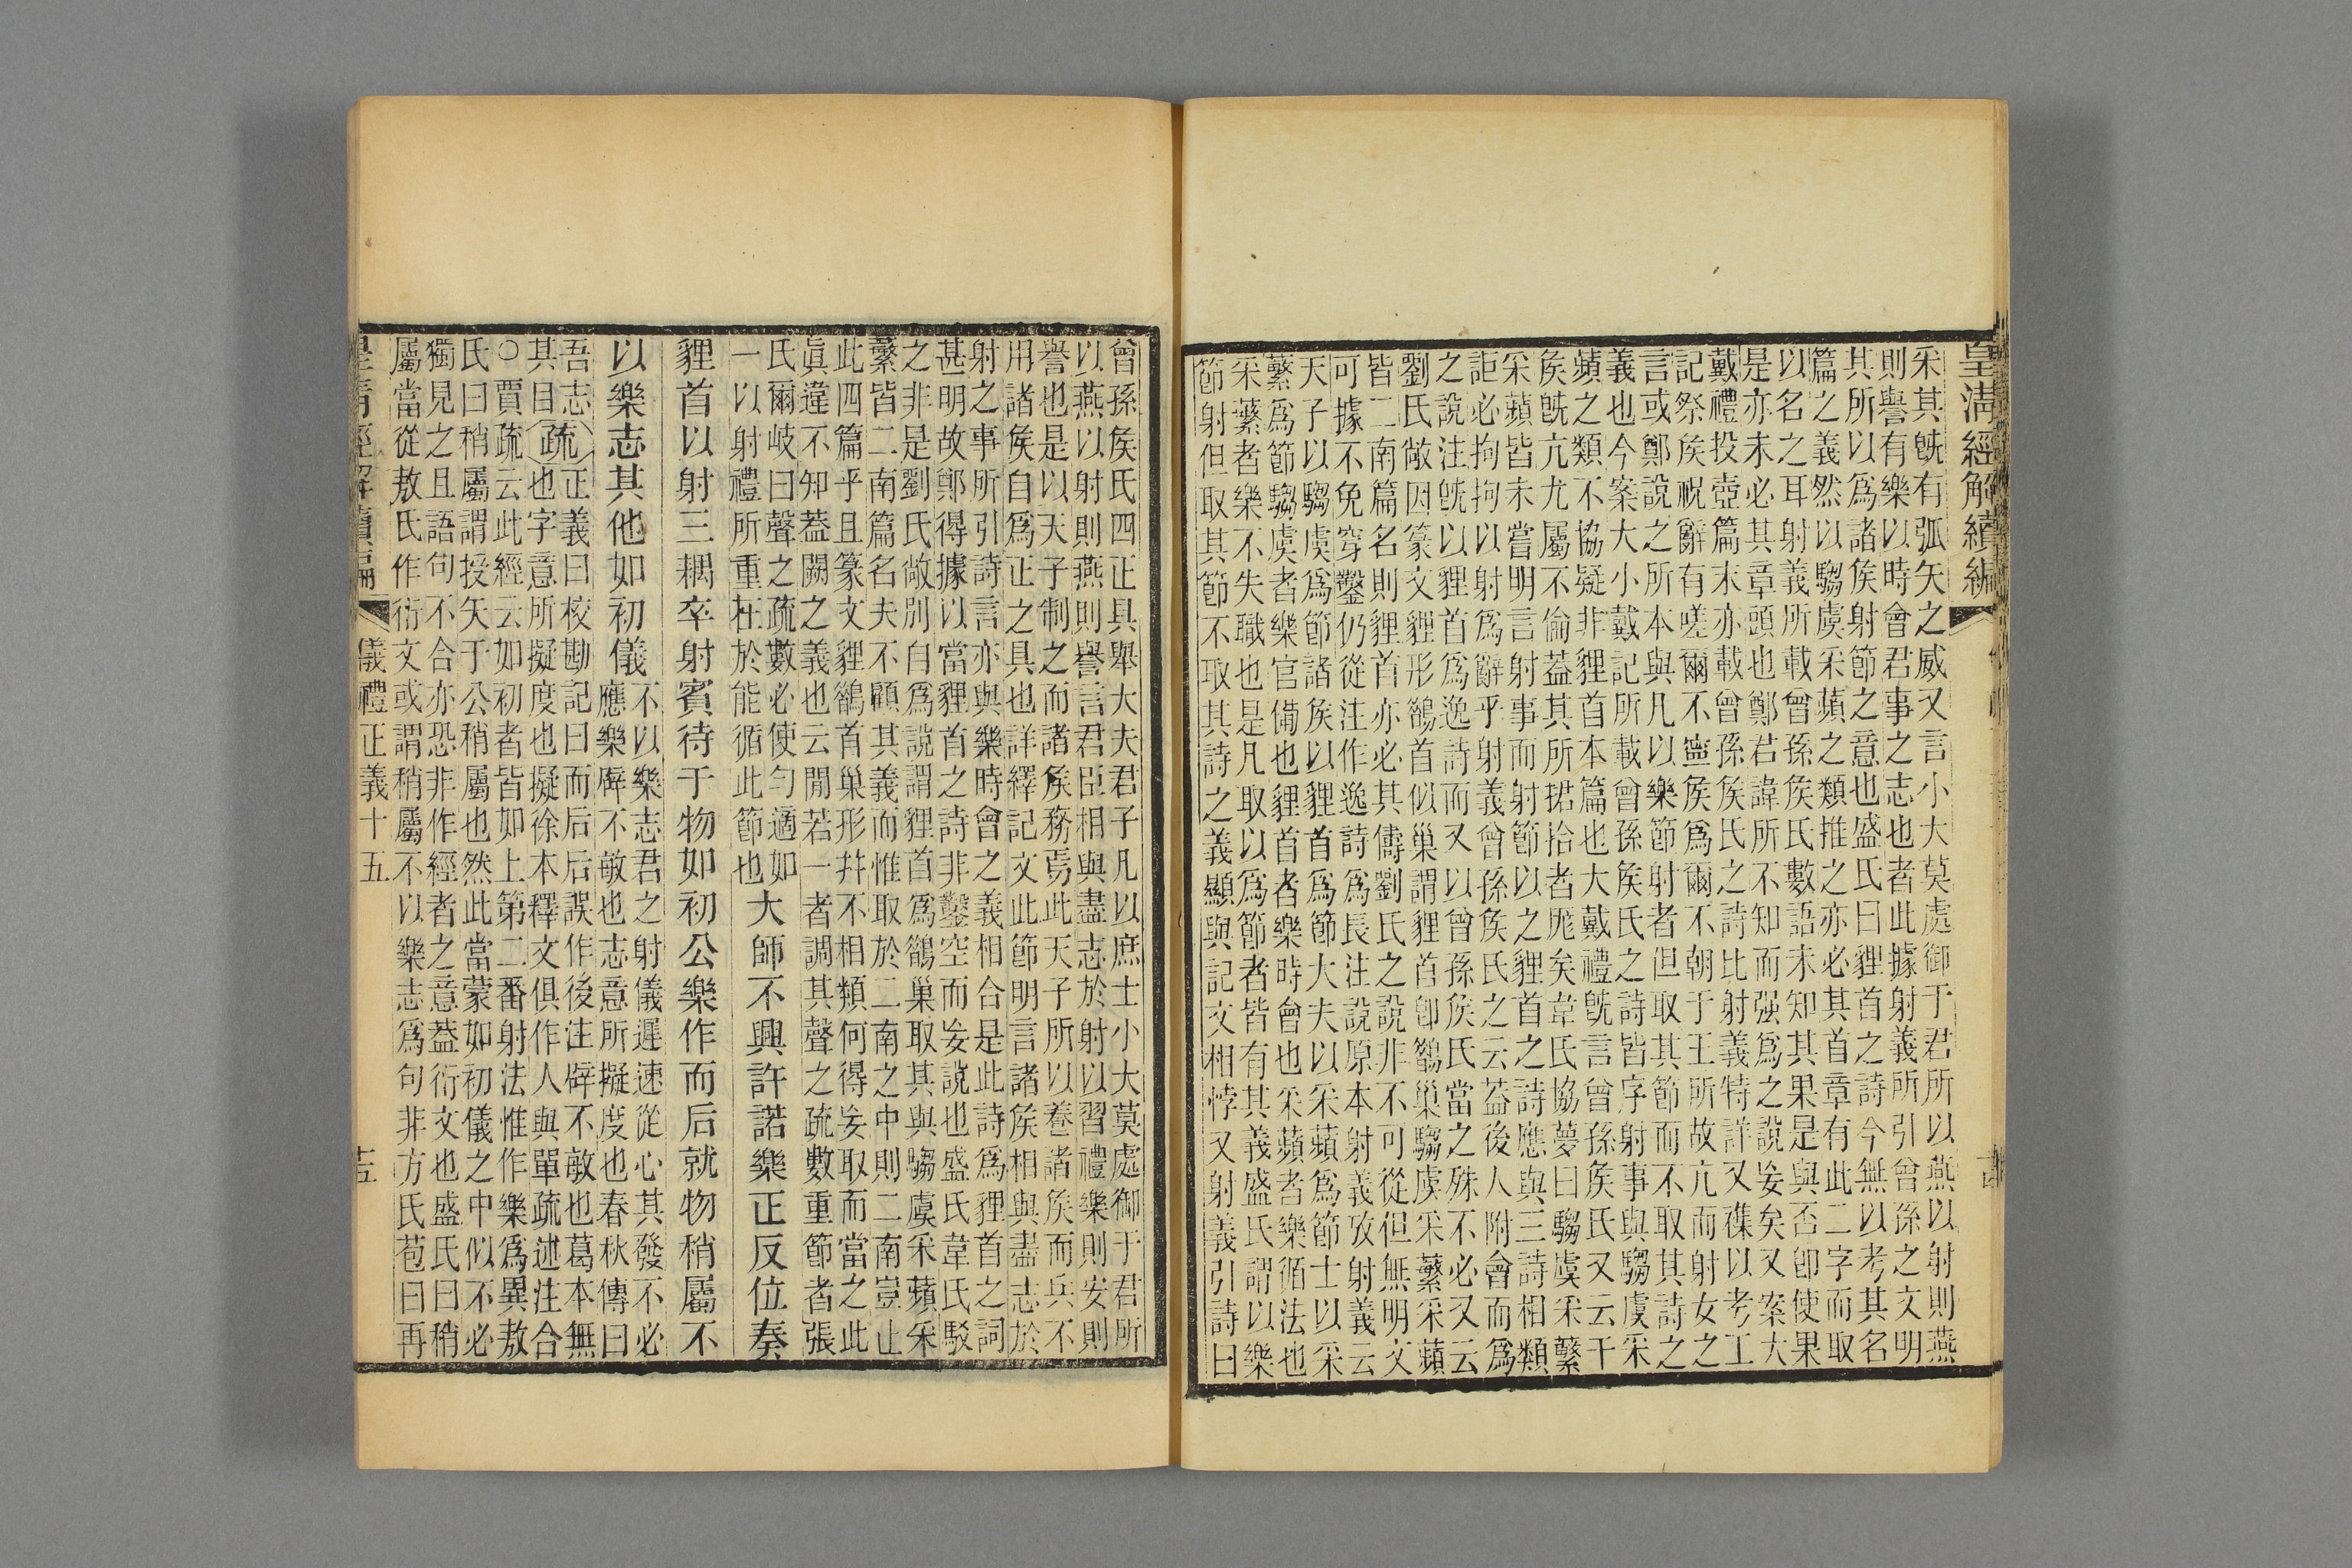 皇清經解續編
采其旣有弧矢之威又言小大莫處御于君所以燕以射則燕
則譽有樂以時會君事之志也者此據射義所引曾孫之文明
其所以爲諸矦射節之意也盛氏曰貍首之詩今無以考其名
篇之義然以騶虞采蘋之類推之亦必其首章有此二字而取
以名之耳射義所載曾孫矦氏數語未知其果是與否卽使果
是亦未必其章頭也鄭君諱所不知而强爲之說妄矣又案大
戴禮投壺篇末亦載曾孫矦氏之詩比射義特詳又襍以考工
記祭矦祝辭有嗟爾不寧矦爲爾不朝于王所故亢而射女之
言或鄭說之所本與凡以樂節射者但取其節而不取其詩之
義也今案大小戴記所載曾孫矦氏之詩皆序射事與騶虞采
蘋之類不協疑非貍首本篇也大戴禮旣言曾孫矦氏又云干
矦旣亢尤屬不倫葢其所捃拾者厖矣韋氏協夢曰騶虞采蘩
采蘋皆未嘗明言射事而射節以之貍首之詩應與三詩相類
詎必拘拘以射爲辭乎射義曾孫矦氏之云葢後人附會而爲
之說注旣以貍首爲逸詩而又以曾孫矦氏當之殊不必又云
劉氏敞因篆文貍形鵒首似巢謂貍首卽鵲巢騶虞采蘩采蘋
皆二南篇名則貍首亦必其儔劉氏之說非不可從但無明文
可據不免穿鑿仍從注作逸詩爲長注說原本射義攷射義云
天子以騶虞爲節諸矦以貍首爲節大夫以采蘋爲節士以采
蘩爲節騶虞者樂官備也貍首者樂時會也采蘋者樂循法也
采蘩者樂不失職也是凡取以爲節者皆有其義盛氏謂以樂
節射但取其節不取其詩之義顯與記文相悖又射義引詩曰
曾孫矦氏四正具舉大夫君子凡以庶士小大莫處御于君所
以燕以射則燕則譽言君臣相與盡志於射以習禮樂則安則
譽也是以天子制之而諸矦務焉此天子所以養諸矦而兵不
用諸矦自爲正之具也詳繹記文此節明言諸矦相與盡志於
射之事所引詩言亦與樂時會之義相合是此詩爲貍首之詞
甚明故鄭得據以當貍首之詩非鑿空而妄說也盛氏韋氏駁
之非是劉氏敞別自爲說謂貍首爲鵲巢取其與騶虞采蘋采
蘩皆二南篇名夫不顧其義而惟取於二南之中則二南豈止
此四篇乎且篆文貍鵒首巢形幷不相類何得妄取而當之此
眞違不知葢闕之義也云閒若一者調其聲之疏數重節者張
氏爾岐曰聲之疏數必使勻適如
一以射禮所重在於能循此節也
大師不興許諾樂正反位奏
貍首以射三耦卒射賓待于物如初公樂作而后就物稍屬不
以樂志其他如初儀
不以樂志君之射儀遲速從心其發不必
應樂辟不敏也志意所擬度也春秋傳曰
吾志
其目
疏
正義曰校勘記曰而后后誤作後注辟不敏也葛本無
也字意所擬度也擬徐本釋文俱作人與單疏述注合
○賈疏云此經云如初者皆如上第二番射法惟作樂爲異敖
氏曰稍屬謂授矢于公稍屬也然此當蒙如初儀之中似不必
獨見之且語句不合亦恐非作經者之意葢衍文也盛氏曰稍
屬當從敖氏作衍文或謂稍屬不以樂志爲句非方氏苞曰再
皇清經解續編 儀禮正義十五